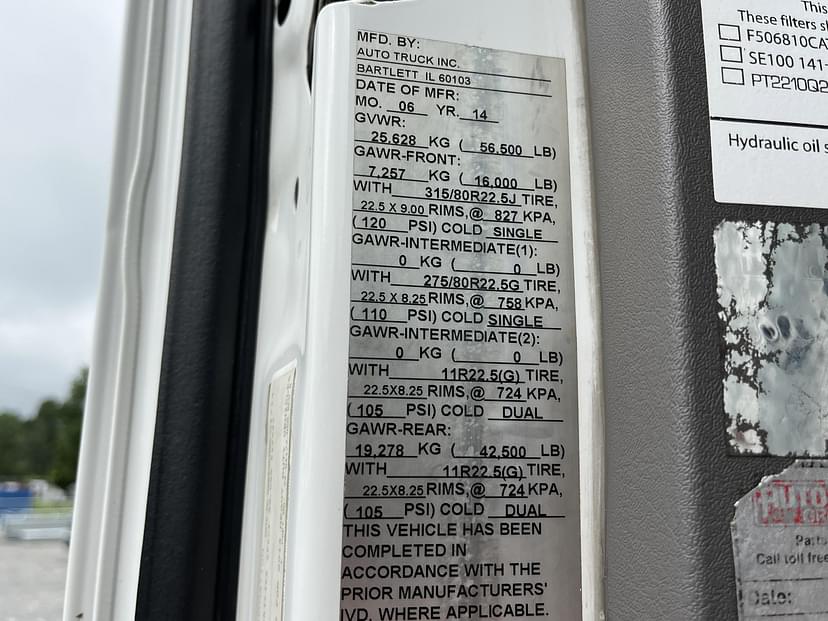 MFD. BY:
AUTO TRUCK INC.
BARTLETT IL 60103
DATE OF MFR:
MO. 06 YR. 14
GVWR:
25,628 KG ( 56,500 LB)
GAWR-FRONT:
7,257 KG ( 16,000 LB)
WITH 315/80R22.5J TIRE,
22.5 X 9.00 RIMS,@ 827 KPA,
( 120 PSI) COLD SINGLE
GAWR-INTERMEDIATE(1):
0 KG ( 0 LB)
WITH 275/80R22.5G TIRE,
22.5 X 8.25 RIMS,@ 758 KPA,
( 110 PSI) COLD SINGLE
GAWR-INTERMEDIATE(2):
0 KG ( 0 LB)
WITH 11R22.5(G) TIRE,
22.5X8.25 RIMS,@ 724 KPA,
( 105 PSI) COLD DUAL
GAWR-REAR:
19,278 KG ( 42,500 LB)
WITH 11R22.5(G) TIRE,
22.5X8.25 RIMS,@ 724 KPA,
( 105 PSI) COLD DUAL
THIS VEHICLE HAS BEEN
COMPLETED IN
ACCORDANCE WITH THE
PRIOR MANUFACTURERS'
IVD, WHERE APPLICABLE.
This
These filters
F506810CA
SE100 141-
PT2210Q2
Hydraulic oil
Parts
Call toll free
Date: